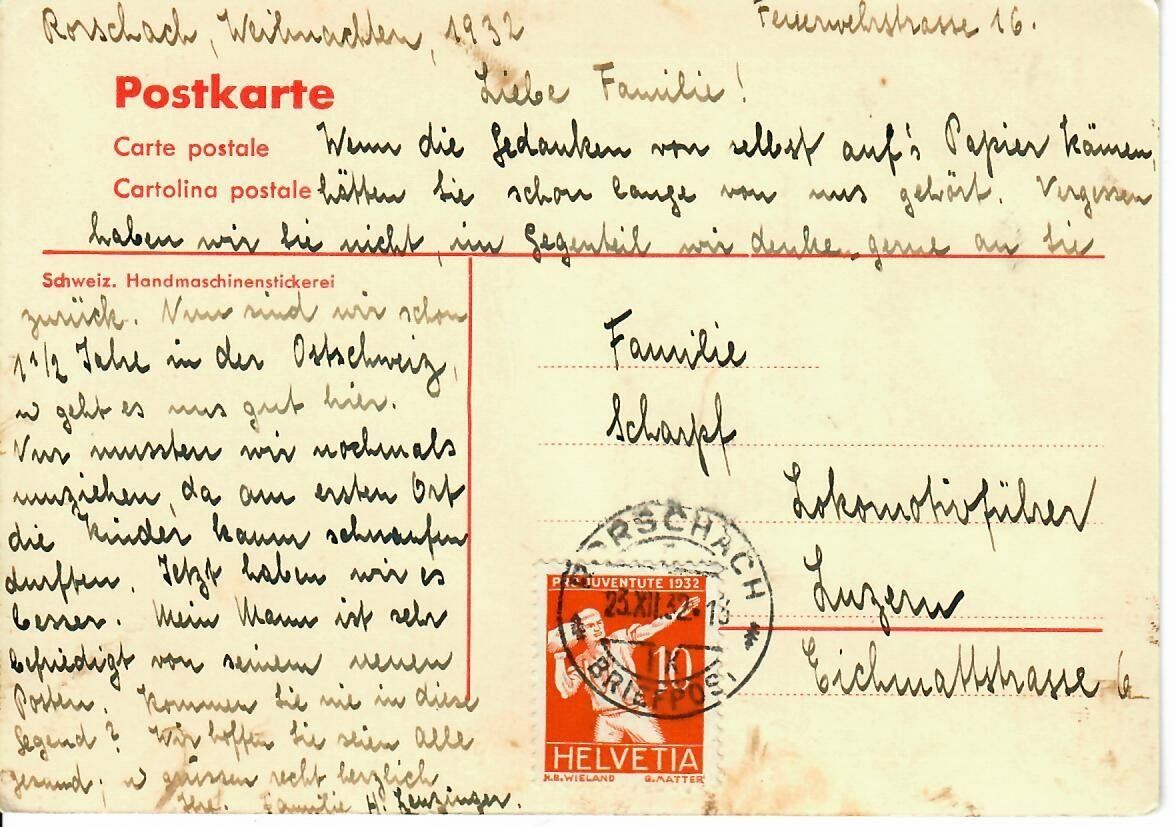 Rorschach, Weihnachten, 1932
Feuerwehrstrasse 16.
Postkarte
Liebe Familie!
Carte postale
Wenn die Gedanken von selbst auf's Papier kämen,
Cartolina postale
hätten Sie schon lange von uns gehört. Vergessen
haben wir Sie nicht, im Gegenteil wir denken gerne an Sie
Schweiz. Handmaschinenstickerei
zurück. Nun sind wir schon
1 1/2 Jahre in der Ostschweiz,
u geht es uns gut hier.
Nur mussten wir nochmals
umziehen, da am ersten Ort
die Kinder kaum schnaufen
durften. Jetzt haben wir es
besser. Mein Mann ist sehr
befriedigt von seinem neuen
Posten. Kommen Sie nie in diese
Gegend? Wir hoffen Sie seien Alle
gesund, u grüssen recht herzlich
Ihre Familie H.
Familie
Scharpf
Lokomotivführer
Luzern
Eichmattstrasse 6
RORSCHACH
25.XII.32-18
BRIEFPOST
PRO JUVENTUTE 1932
10
HELVETIA
H.B. WIELAND G. MATTER